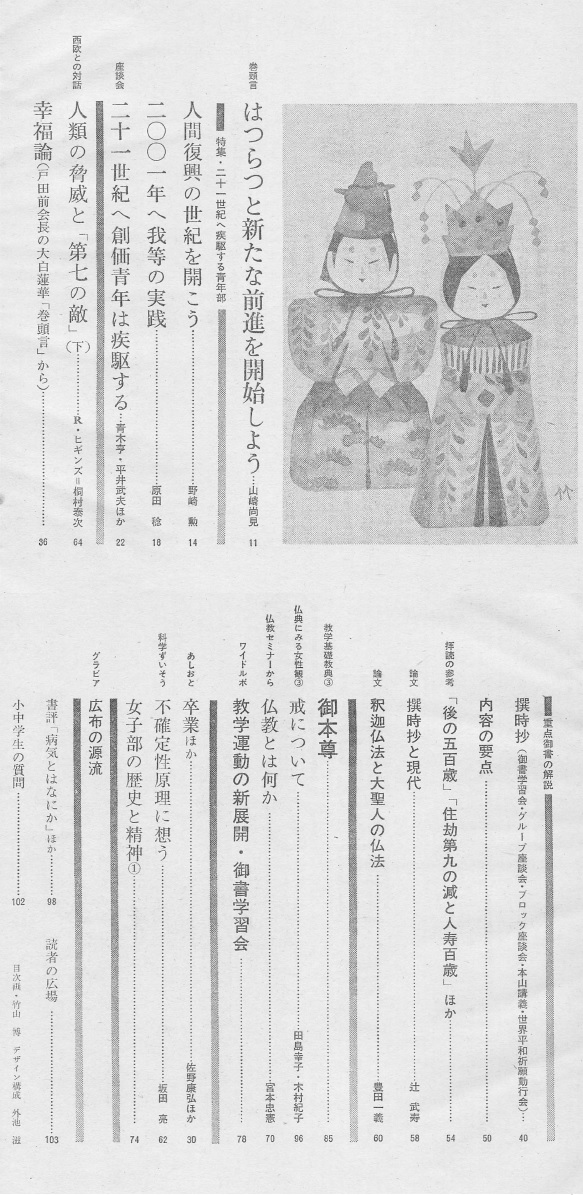 巻頭言 はつらつと新たな前進を開始しよう 山崎尚見 11
特集・二十一世紀へ疾駆する青年部
人間復興の世紀を開こう 野崎 勲 14
二〇〇一年へ我等の実践 原田 稔 18
座談会 二十一世紀へ創価青年は疾駆する 青木亨・平井武夫ほか 22
西欧との対話 人類の脅威と「第七の敵」(下) R・ヒギンズ=桐村泰次 64
幸福論(戸田前会長の大白蓮華「巻頭言」から) 36
重点御書の解説
撰時抄(御書学習会・グループ座談会・ブロック座談会・本山講義・世界平和祈願勤行会) 40
内容の要点 50
拝読の参考 「後の五百歳」「住劫第九の減と人寿百歳」ほか 54
論文 撰時抄と現代 辻 武寿 58
論文 釈迦仏法と大聖人の仏法 豊田一義 60
教学基礎教典③ 御本尊 85
仏典にみる女性観③ 戒について 田島幸子・木村紀子 96
仏教セミナーから 仏教とは何か 宮本忠憲 70
ワイドルポ 教学運動の新展開・御書学習会 78
あしおと 卒業ほか 佐野康弘ほか 30
科学ずいそう 不確定性原理に想う 坂田 亮 62
女子部の歴史と精神① 74
グラビア 広布の源流
書評「病気とはなにか」ほか 98
読者の広場 103
小中学生の質問 102
目次画・竹山 博 デザイン構成 外池 滋